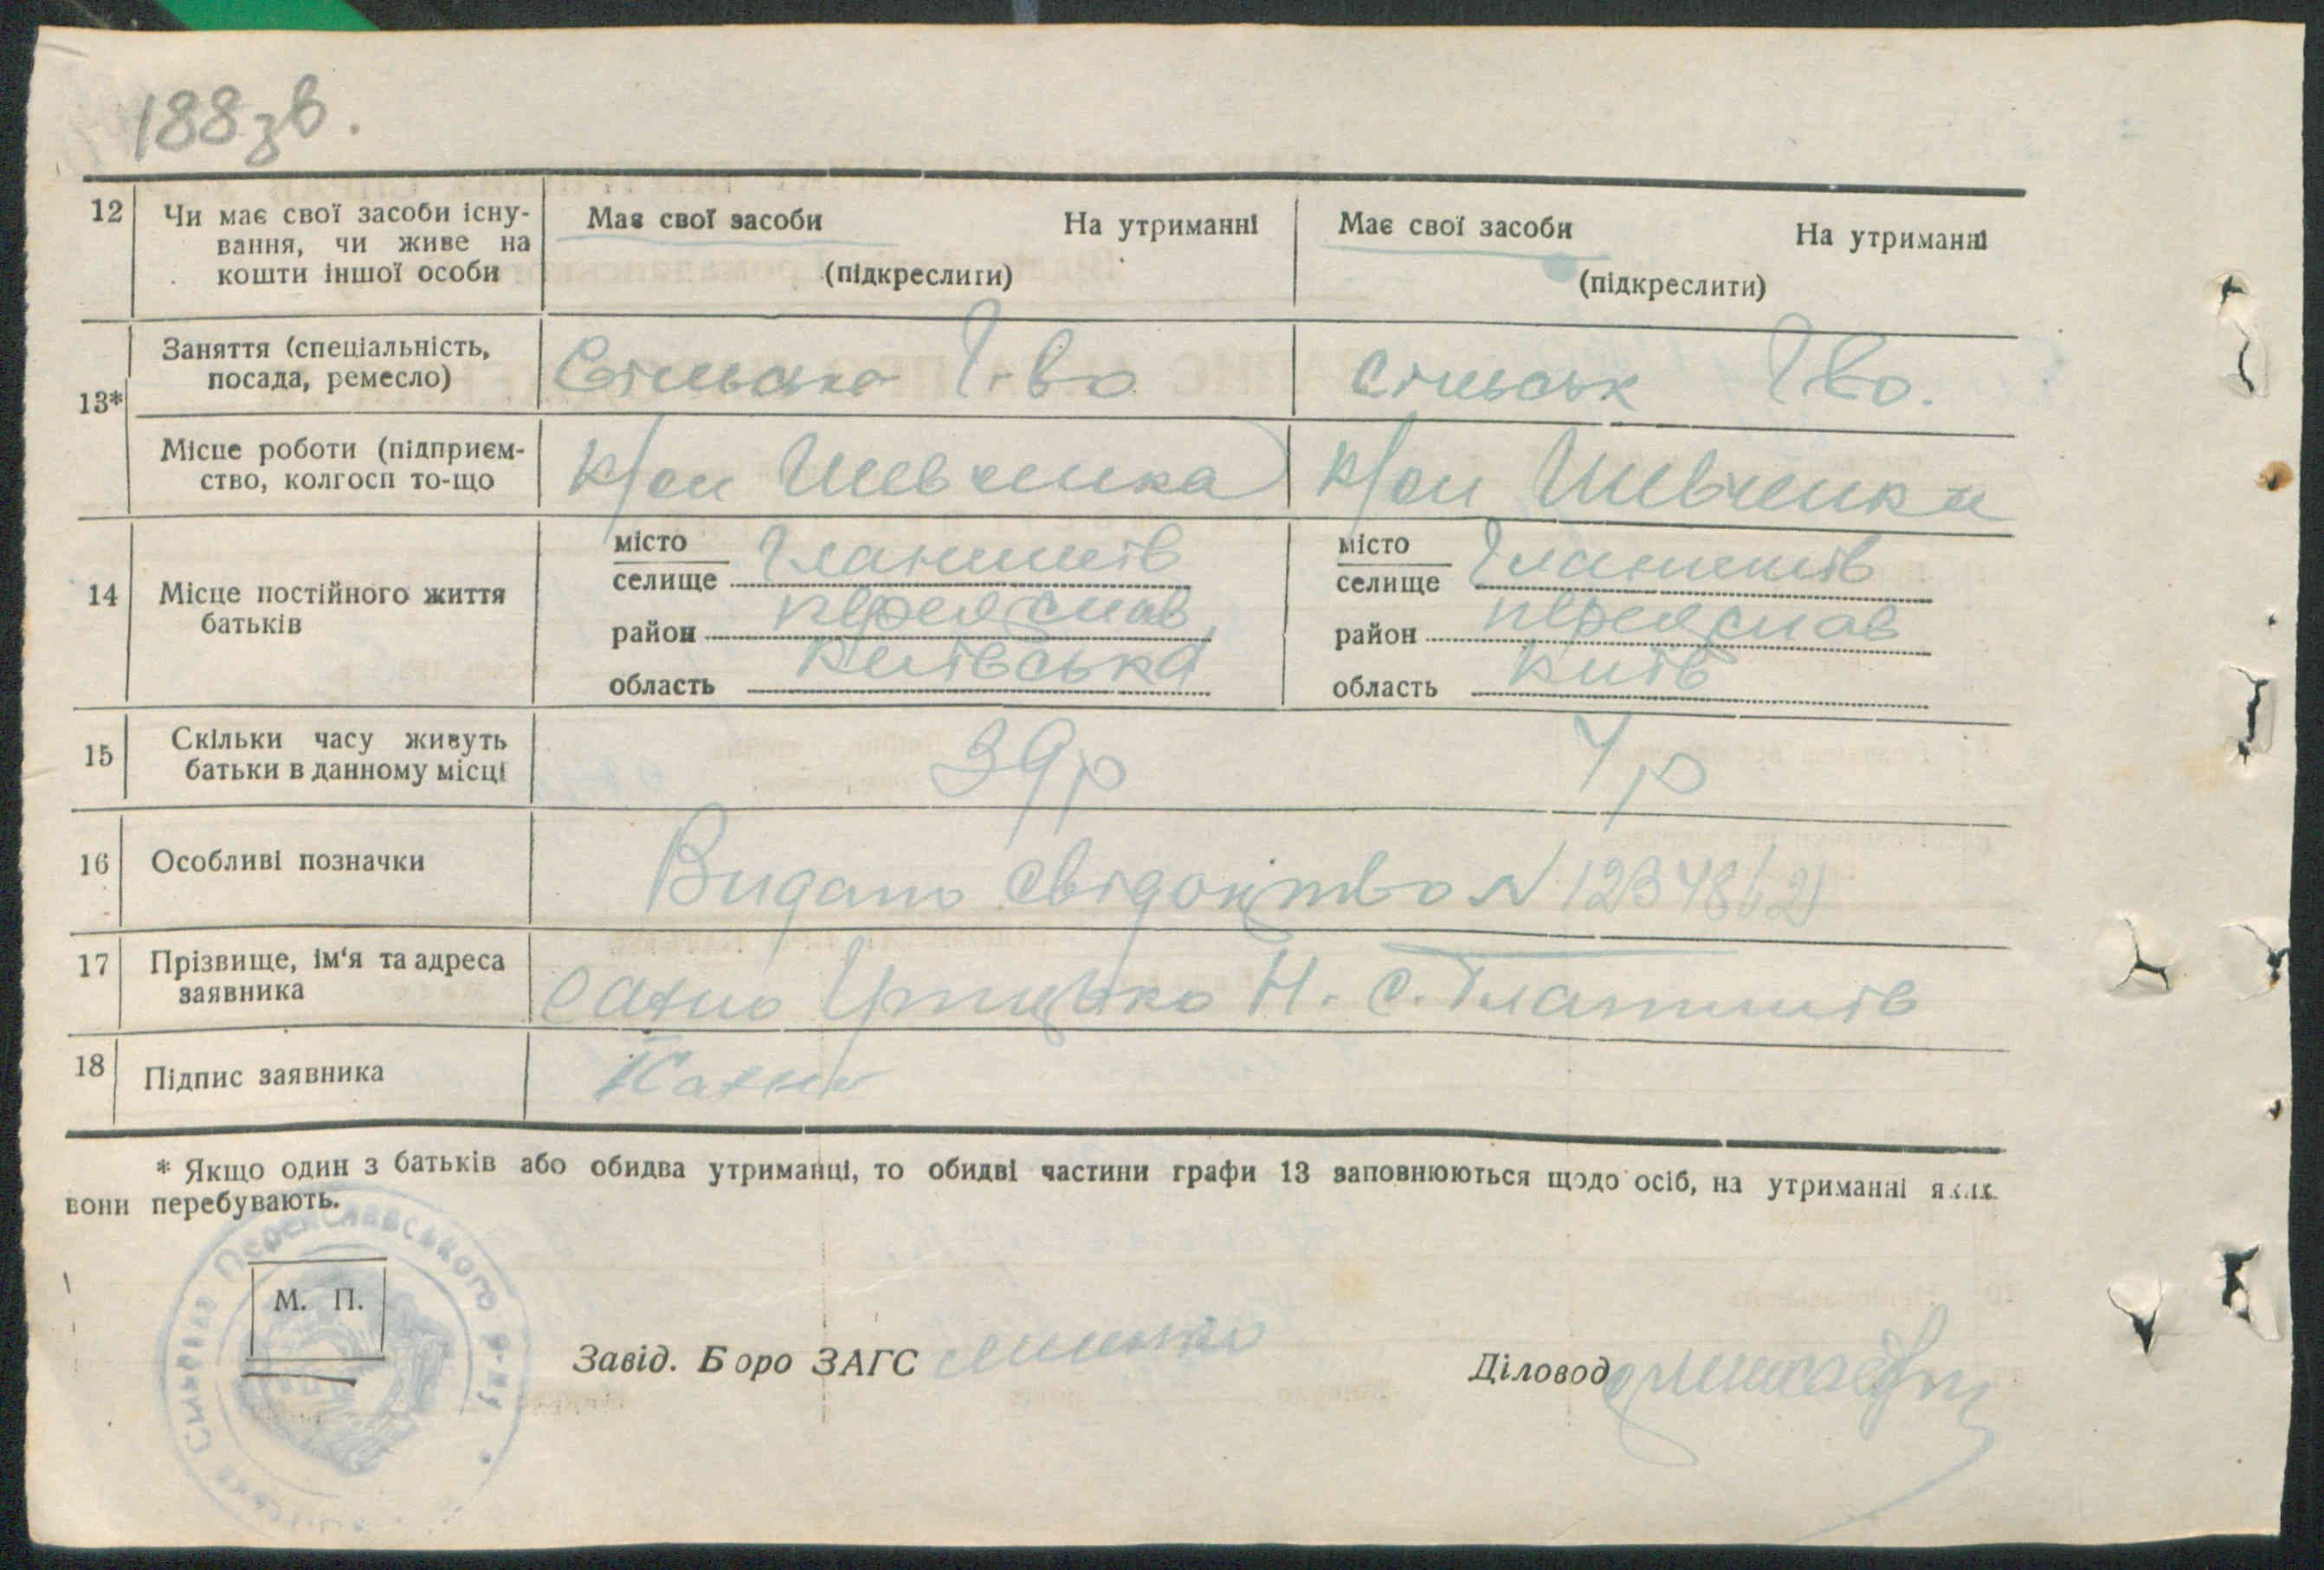 188зв.
12 Чи має свої засоби існу-
вання, чи живе на
кошти іншої особи
Має свої засоби На утриманні
(підкреслити)
Має свої засоби На утриманні
(підкреслити)
13*
Заняття (спеціальність,
посада, ремесло)
Сільське г-во
Сільськ г-во.
Місце роботи (підприєм-
ство, колгосп то-що
к/оп Шевченка
к/оп Шевченка
14 Місце постійного життя
батьків
місто
селище Гланишів
район Переяслав
область Київська
місто
селище Гланишів
район Переяслав
область Київ
15 Скільки часу живуть
батьки в данному місці
39р
7р
16 Особливі позначки
Видано свідоцтво N
17 Прізвище, ім'я та адреса
заявника
Сахно Н. с. Гланишів
18 Підпис заявника
Сахно
* Якщо один з батьків або обидва утриманці, то обидві частини графи 13 заповнюються щодо осіб, на утриманні яких
вони перебувають.
Переяславського р-ну
М. П.
Завід. Бюро ЗАГС
Діловод